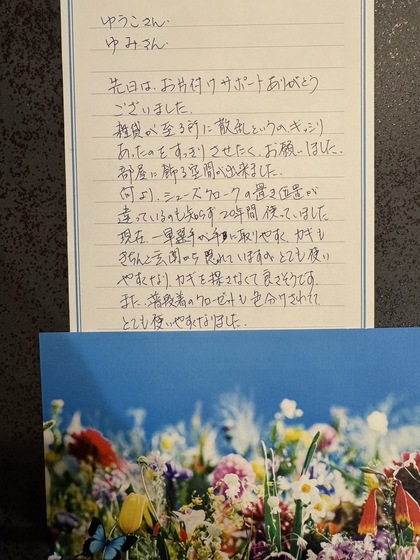 ゆうこさん.
ゆみさん.
先日は、お片付けサポートありがとう
ございました.
雑貨が至る所に散乱というのぎっしり
あったのをすっきりさせたく、お願いしました.
部屋に飾る空間が出来ました.
何より、シューズクロークの置き位置が
違っているのも知らず20年間使っていました
現在、一軍選手が手に取りやすく、カギも
きちんと玄関から 思れていますが とても使い
やすくなり、カギを探さなくて良さそうです.
また、普段着のクローゼットも色分けされて
とても使いやすくなりました.